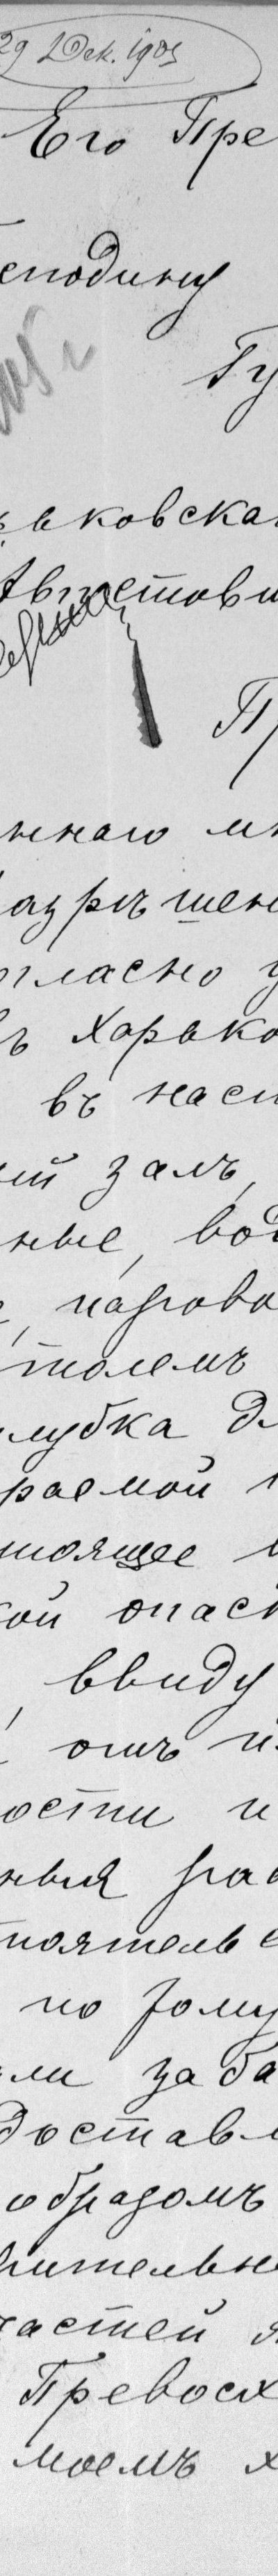 29 Дек. 1905
Его Пре
сподину
Гу
ьковская
Августови
П
ннаго мн
азрѣшен
огласно у
въ Харько
въ наст
ый залъ,
ные, вод
, парово
толемъ
лубка дл
раемой
стоящее
кой опасн
, ввиду
отъ
ости и
ныя рас
тоятельс
по Тому
или заба
доставл
образомъ
нительн
частей я
Превосх
моемъ х